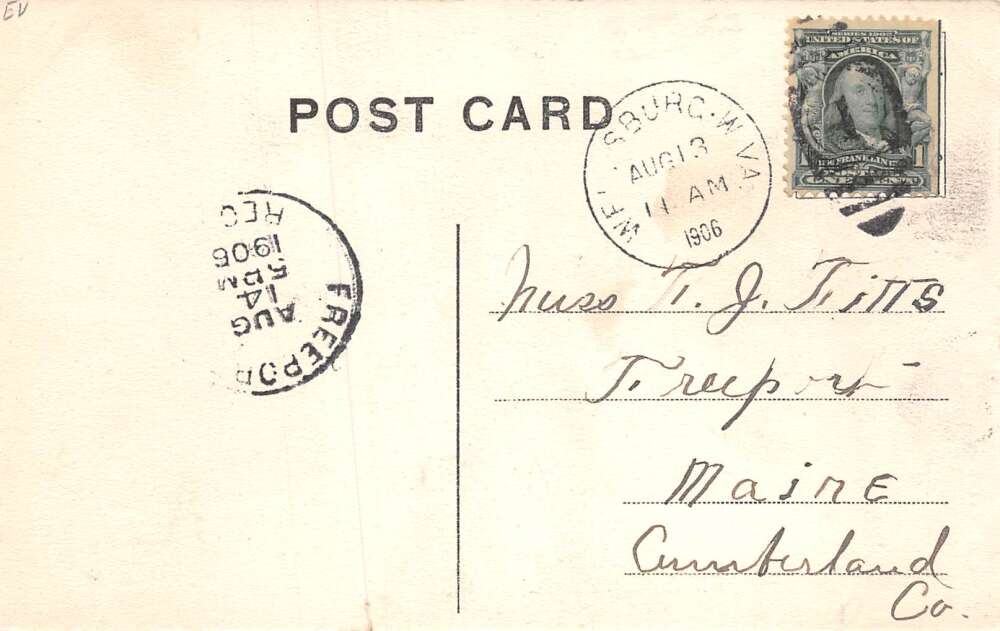 EV
POST CARD
WELLSBURG. W. VA.
AUG 13
11 AM
1906
SERIES 1902
UNITED STATES OF
AMERICA
1 FRANKLIN 1
POSTAGE
ONE CENT
FREEPOR
AUG
14
5 PM
1906
REC
Miss F. J. Fitts
Freeport
Maine
Cumberland
Co.